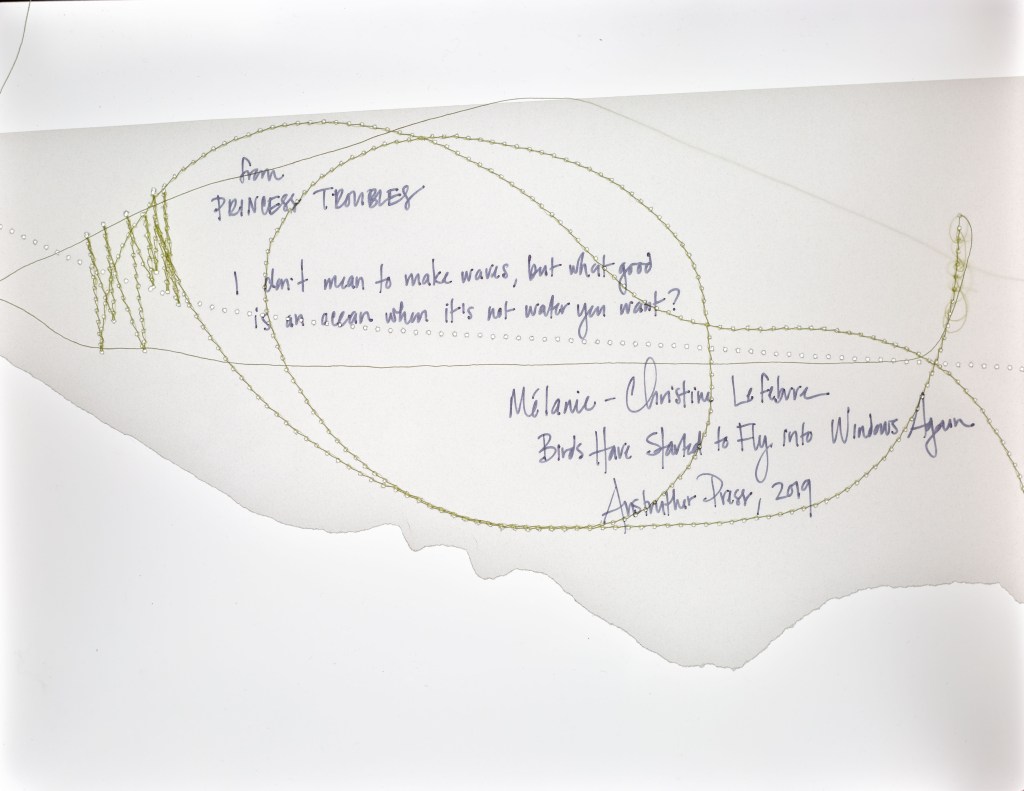 from
PRINCESS TROUBLES
I don't mean to make waves, but what good
is an ocean when it's not water you want?
Mélanie - Christine Lefebvre
Birds Have Started to Fly into Windows Again
Anstruther Press, 2019